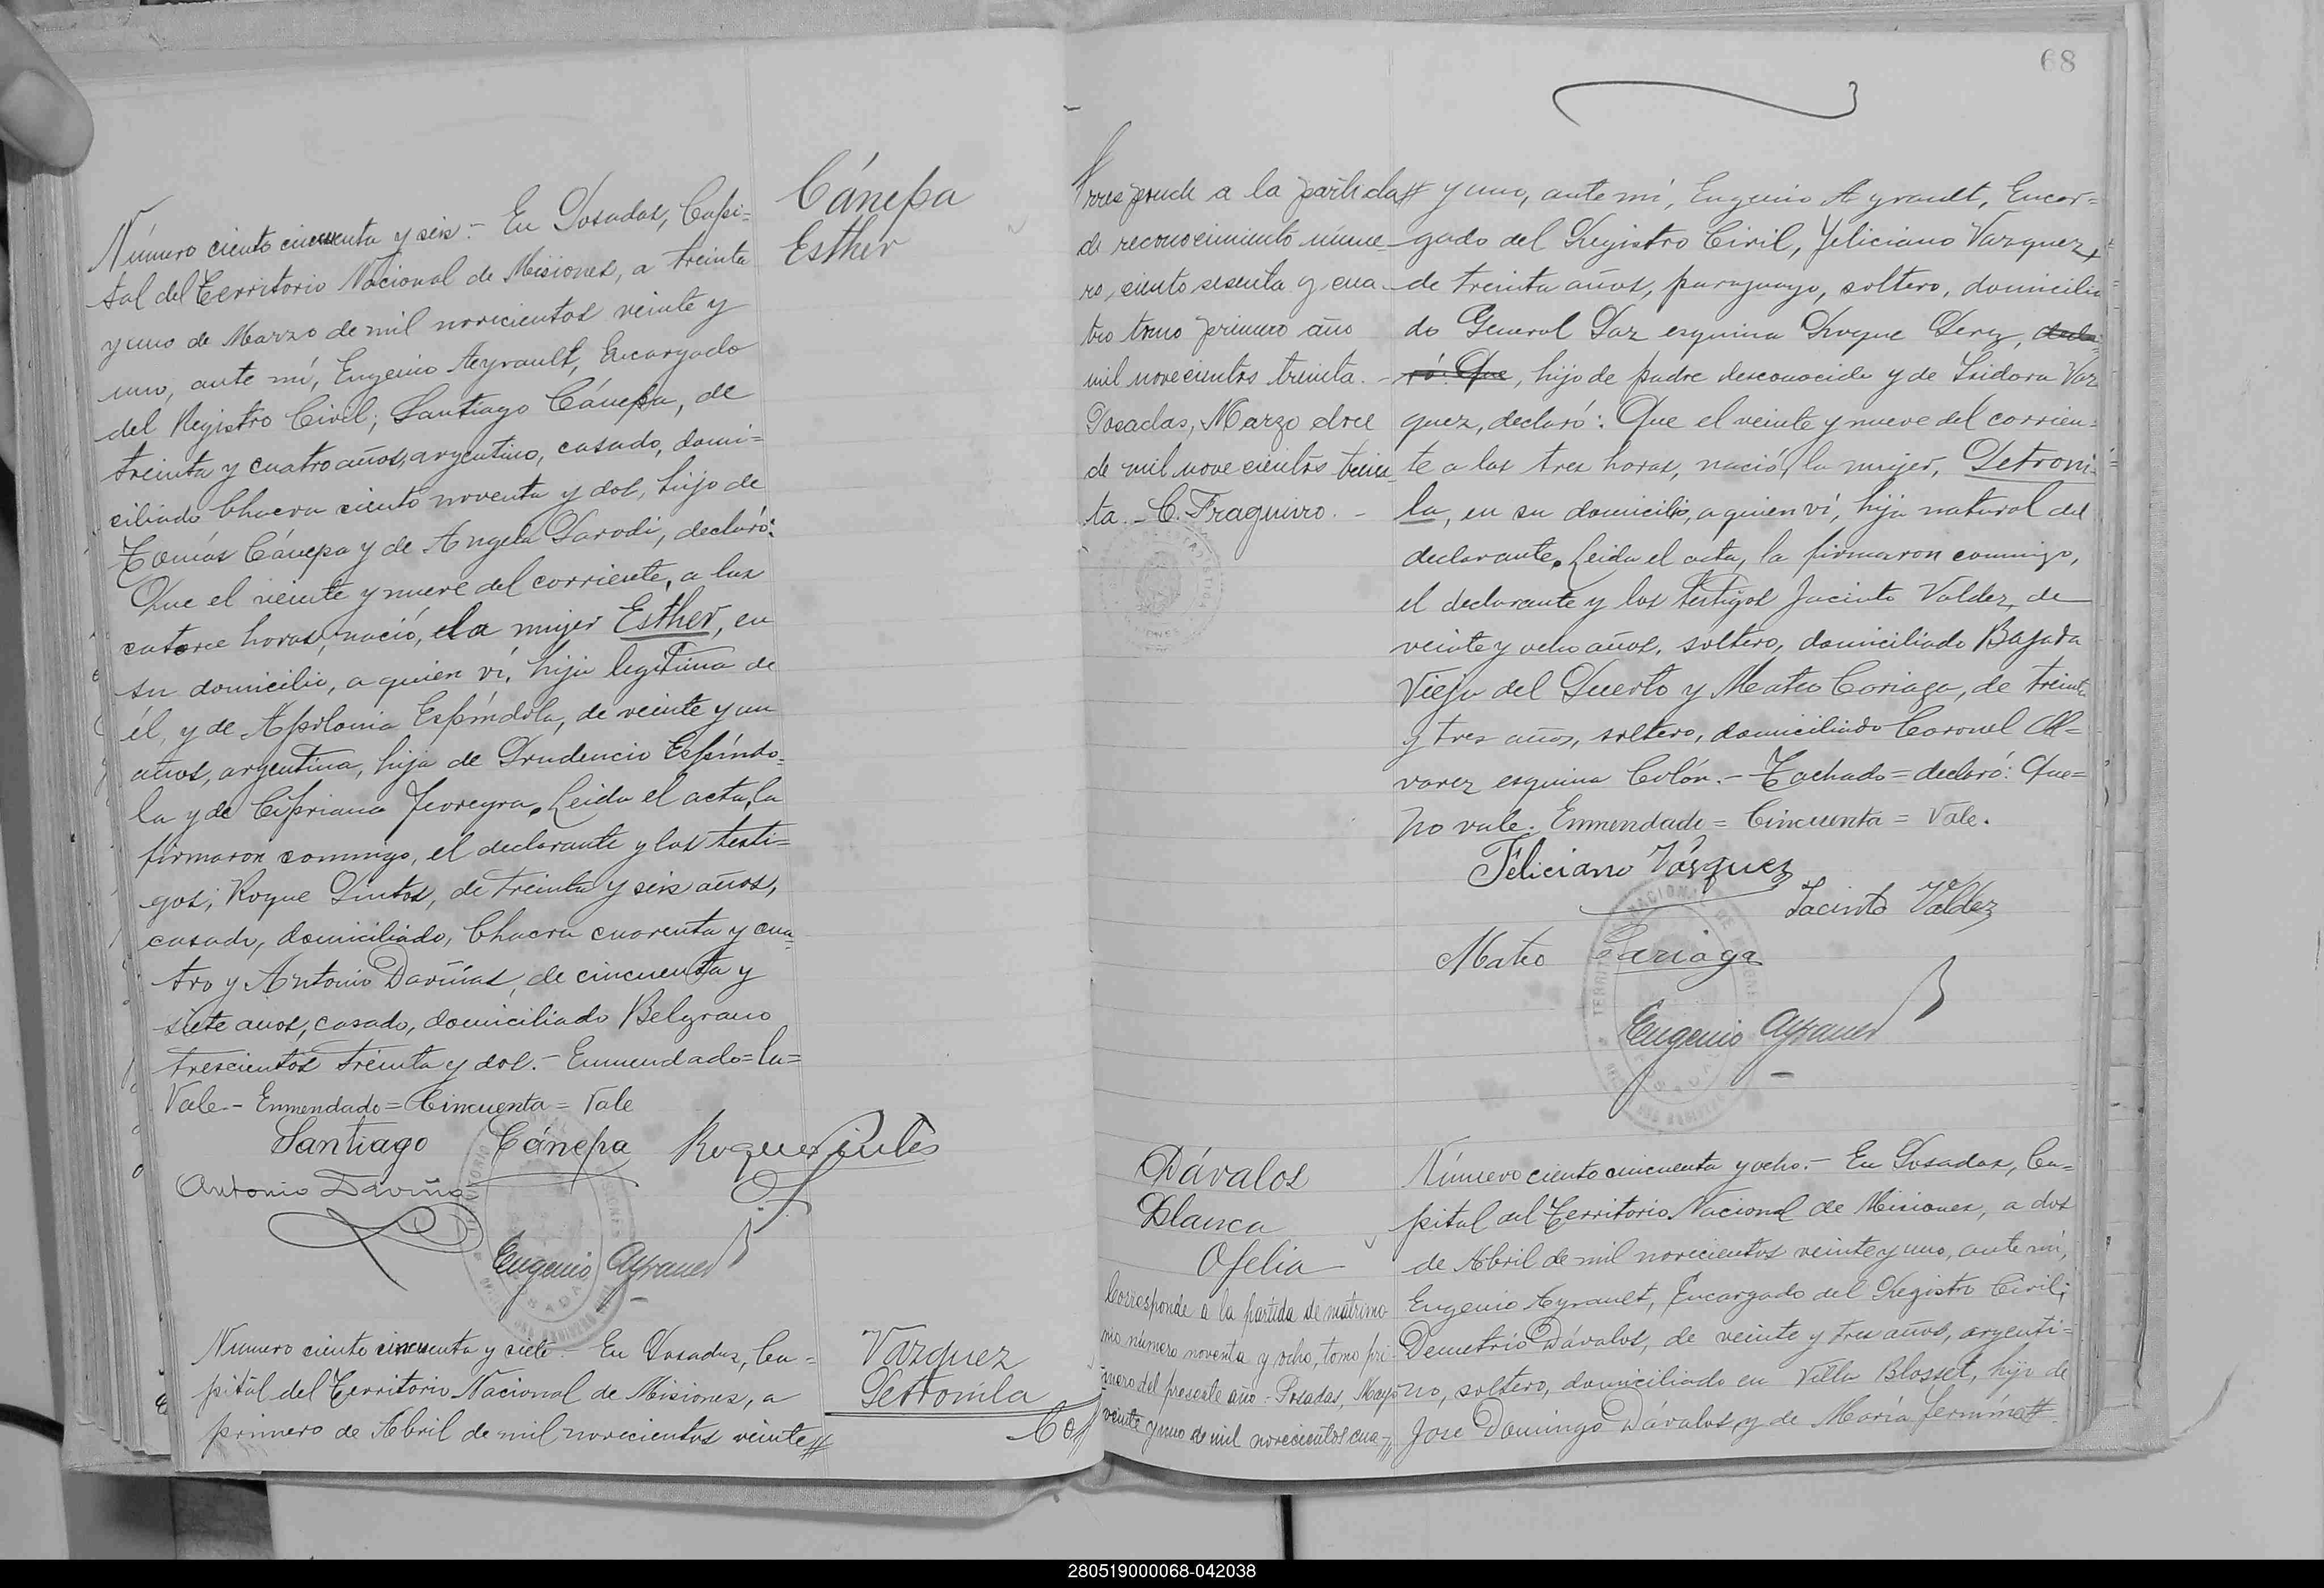 Cánepa
Esther
Número ciento cincuenta y seis.- En Posadas, Capi=
tal del Territorio Nacional de Misiones, a treinta
y uno de Marzo de mil novecientos veinte y
uno, ante mí, Eugenio Ayrault, Encargado
del Registro Civil; Santiago Cánepa, de
treinta y cuatro años, argentino, casado, domi=
ciliado Chacra ciento noventa y dos, hijo de
Tomás Cánepa y de Angela Parodi, declaró:
Que el veinte y nueve del corriente, a las
catorce horas, nació, la mujer Esther, en
su domicilio, a quien ví, hija legítima de
él, y de Apolonia Espíndola, de veinte y un
años, argentina, hija de Prudencio Espíndo=
la y de Cipriana Ferreyra. Leida el acta, la
firmaron conmigo, el declarante y los testi=
gos; Roque Pintos, de treinta y seis años,
casado, domiciliado, Chacra cuarenta y cua=
tro y Antonio Daviñas, de cincuenta y
siete años, casado, domiciliado Belgrano
trescientos treinta y dos.- Enmendado=la=
Vale- Enmendado=Cincuenta= Vale
Santiago Cánepa Roque Pintos
Antonio Daviña
Eugenio Ayrault
Vazquez
Petronila
Número ciento cincuenta y siete.- En Posadas, Ca=
pital del Territorio Nacional de Misiones, a
primero de Abril de mil novecientos veinte//
Co//
68
rresponde a la partida//
de reconocimiento núme-
ro, ciento sesenta y cua-
tro tomo primero año
mil novecientos treinta.-
Posadas, Marzo doce
de mil novecientos trein-
ta.- C. Fraguiro.-
y uno, ante mí, Eugenio Ayrault, Encar=
gado del Registro Civil, Feliciano Vazquez,
de treinta años, paraguayo, soltero, domicilia
do General Paz esquina Roque Perez, decla=
ró: Que, hijo de padre desconocido y de Isidora Vaz
quez, declaró: Que el veinte y nueve del corrien=
te a las tres horas, nació, la mujer, Petroni=
la, en su domicilio, a quien ví, hija natural del
declarante. Leida el acta, la firmaron conmigo,
el declarante y los testigos Jacinto Valdez, de
veinte y ocho años, soltero, domiciliado Bajada
Vieja del Puerto y Mateo Cariaga, de treinta
y tres años, soltero, domiciliado Coronel Al=
varez esquina Colón.- Tachado=declaró: Que=
No vale. Enmendado= Cincuenta= Vale.
Feliciano Vásquez
Jacinto Valdez
Mateo Cariaga
Eugenio Ayrault
Dávalos
Blanca
Ofelia
Corresponde a la partida de matrimo-
nio número noventa y ocho, tomo pri-
mero del presente año.- Posadas, Mayo
veinte y uno de mil novecientos cua-//
Número ciento cincuenta y ocho.- En Posadas, Ca=
pital del Territorio Nacional de Misiones, a dos
de Abril de mil novecientos veinte y uno, ante mí,
Eugenio Ayrault, Encargado del Registro Civil;
Demetrio Dávalos, de veinte y tres años, argenti=
no, soltero, domiciliado en Villa Blosset, hijo de
Jose Domingo Dávalos y de María
280519000068-042038